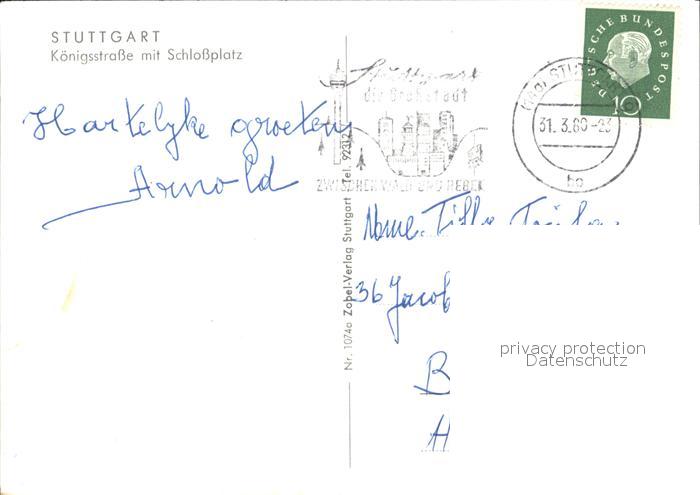 STUTTGART
Königsstraße mit Schloßplatz
Hartelyke groeten
Arnold
Stuttgart
die Großstadt
ZWISCHEN WALD UND REBEN
DEUTSCHE BUNDESPOST
10
31. 3.60-23
bo
Nr. 1074a Zobel-Verlag Stuttgart Tel. 92312
36 Jacob
B
H
privacy protection
Datenschutz